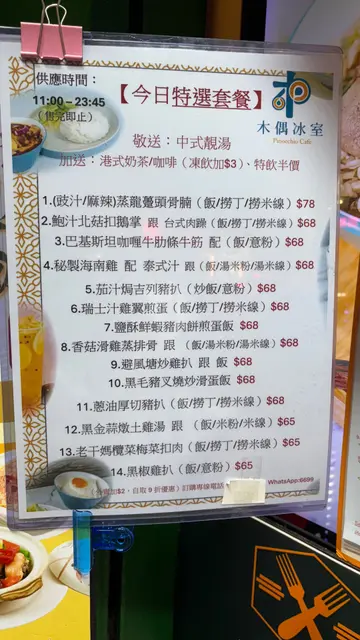 供應時間：
11:00－23:45
(售完即止)
【今日特選套餐】
木偶冰室
Pinocchio Café
敬送：中式靚湯
加送：港式奶茶/咖啡（凍飲加$3）、特飲半價
1.(豉汁/麻辣)蒸龍躉頭骨腩（飯/撈丁/撈米線）$78
2.鮑汁北菇扣鵝掌 跟 台式肉燥（飯/撈丁/撈米線）$68
3.巴基斯坦咖喱牛肋條牛筋 配（飯/意粉）$68
4.秘製海南雞 配 泰式汁 跟（飯/湯米粉/湯米線）$68
5.茄汁焗吉列豬扒（炒飯/意粉）$68
6.瑞士汁雞翼煎蛋（飯/撈丁/撈米線）$68
7.鹽酥鮮蝦豬肉餅煎蛋飯 $68
8.香菇滑雞蒸排骨 跟（飯/湯米粉/湯米線）$68
9.避風塘炒雞扒 跟 飯 $68
10.黑毛豬叉燒炒滑蛋飯 $68
11.蔥油厚切豬扒（飯/撈丁/撈米線）$68
12.黑金蒜燉土雞湯 跟 （飯/米粉/米線）$65
13.老干媽欖菜梅菜扣肉（飯/撈丁/撈米線）$65
14.黑椒雞扒（飯/意粉）$65
加$2，自取9折優惠）訂購專線電話
WhatsApp:6699